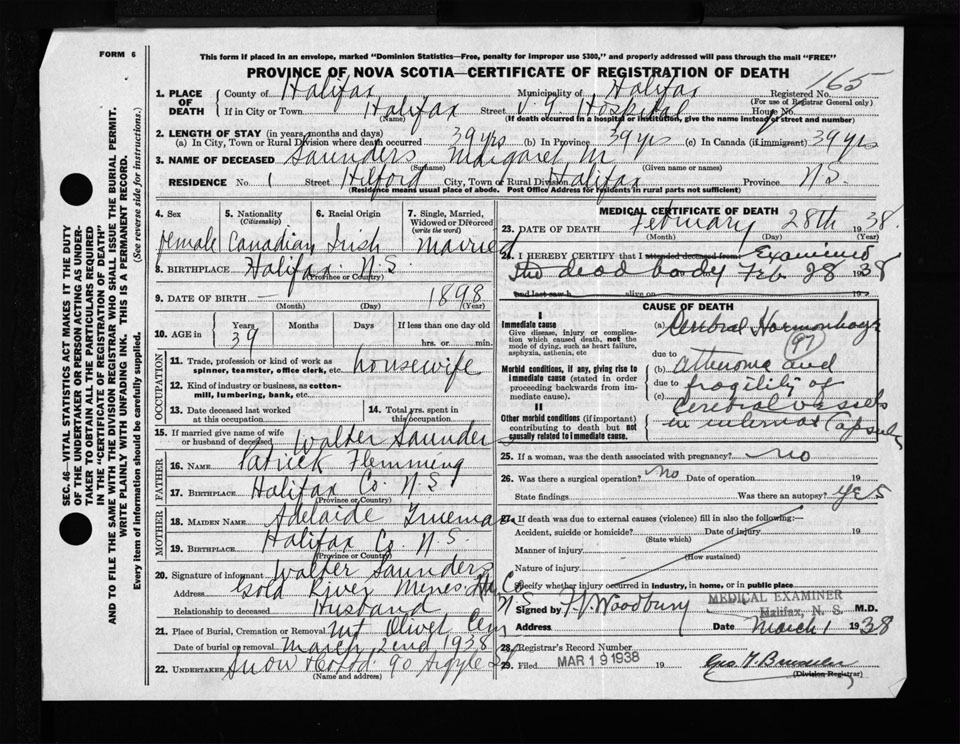 FORM 6
This form if placed in an envelope, marked "Dominion Statistics—Free, penalty for improper use $300," and properly addressed will pass through the mail "FREE"
PROVINCE OF NOVA SCOTIA—CERTIFICATE OF REGISTRATION OF DEATH
1. PLACE OF DEATH
County of Halifax Municipality of Halifax Registered No. 165
(For use of Registrar General only)
If in City or Town Halifax Street V. G. Hospital House No.
(Name) (If death occurred in a hospital or institution, give the name instead of street and number)
2. LENGTH OF STAY (in years, months and days)
(a) In City, Town or Rural Division where death occurred 39 yrs (b) In Province 39 yrs (c) In Canada (if immigrant) 39 yrs
3. NAME OF DECEASED Saunders Margaret M
(Surname) (Given name or names)
RESIDENCE No. 1 Street Hilford City, Town or Rural Division Halifax Province N.S.
(Residence means usual place of abode. Post Office Address for residents in rural parts not sufficient)
4. Sex female
5. Nationality (Citizenship) Canadian
6. Racial Origin Irish
7. Single, Married, Widowed or Divorced (write the word) Married
8. BIRTHPLACE Halifax N.S.
(Province or Country)
9. DATE OF BIRTH — 1898
(Month) (Day) (Year)
10. AGE in Years Months Days If less than one day old
39 hrs. or min.
OCCUPATION
11. Trade, profession or kind of work as spinner, teamster, office clerk, etc. housewife
12. Kind of industry or business, as cotton-mill, lumbering, bank, etc.
13. Date deceased last worked at this occupation
14. Total yrs. spent in this occupation
15. If married give name of wife or husband of deceased Walter Saunders
FATHER
16. NAME Patrick Flemming
17. BIRTHPLACE Halifax Co. N.S.
(Province or Country)
MOTHER
18. MAIDEN NAME Adelaide Trueman
19. BIRTHPLACE Halifax Co N.S.
(Province or Country)
20. Signature of informant Walter Saunders
Address Gold River Mines Co N.S
Relationship to deceased Husband
21. Place of Burial, Cremation or Removal Mt Olivet Cem
Date of burial or removal March 2nd 1938
22. UNDERTAKER Snow 90 Argyle St
(Name and address)
MEDICAL CERTIFICATE OF DEATH
23. DATE OF DEATH February 28th 1938
(Month) (Day) (Year)
24. I HEREBY CERTIFY that I attended deceased from Examined
the dead body Feb 28 1938
and last saw h alive on 19
CAUSE OF DEATH
I
Immediate cause
Give disease, injury or complication which caused death, not the mode of dying, such as heart failure, asphyxia, asthenia, etc
Morbid conditions, if any, giving rise to immediate cause (stated in order proceeding backwards from immediate cause).
II
Other morbid conditions (if important) contributing to death but not causally related to immediate cause.
(a) Cerebral Hormonhage
(97)
due to
(b) atheroma and
due to fragility of
(c) Cerebral vessels
in internal Capsule
25. If a woman, was the death associated with pregnancy? no
26. Was there a surgical operation? no Date of operation 19
State findings Was there an autopsy? yes
27. If death was due to external causes (violence) fill in also the following:—
Accident, suicide or homicide? Date of injury 19
(State which)
Manner of injury
(How sustained)
Nature of injury
Specify whether injury occurred in industry, in home, or in public place
Signed by F V Woodbury MEDICAL EXAMINER M.D.
Halifax, N. S.
Address Date March 1 1938
28. Registrar's Record Number
29. Filed MAR 19 1938 19
(Division Registrar)
SEC. 46—VITAL STATISTICS ACT MAKES IT THE DUTY
OF THE UNDERTAKER OR PERSON ACTING AS UNDER-
TAKER TO OBTAIN ALL THE PARTICULARS REQUIRED
IN THE "CERTIFICATE OF REGISTRATION OF DEATH"
AND TO FILE THE SAME WITH THE DIVISION REGISTRAR WHO SHALL ISSUE THE BURIAL PERMIT.
WRITE PLAINLY WITH UNFADING INK. THIS IS A PERMANENT RECORD.
Every item of information should be carefully supplied. (See reverse side for instructions.)